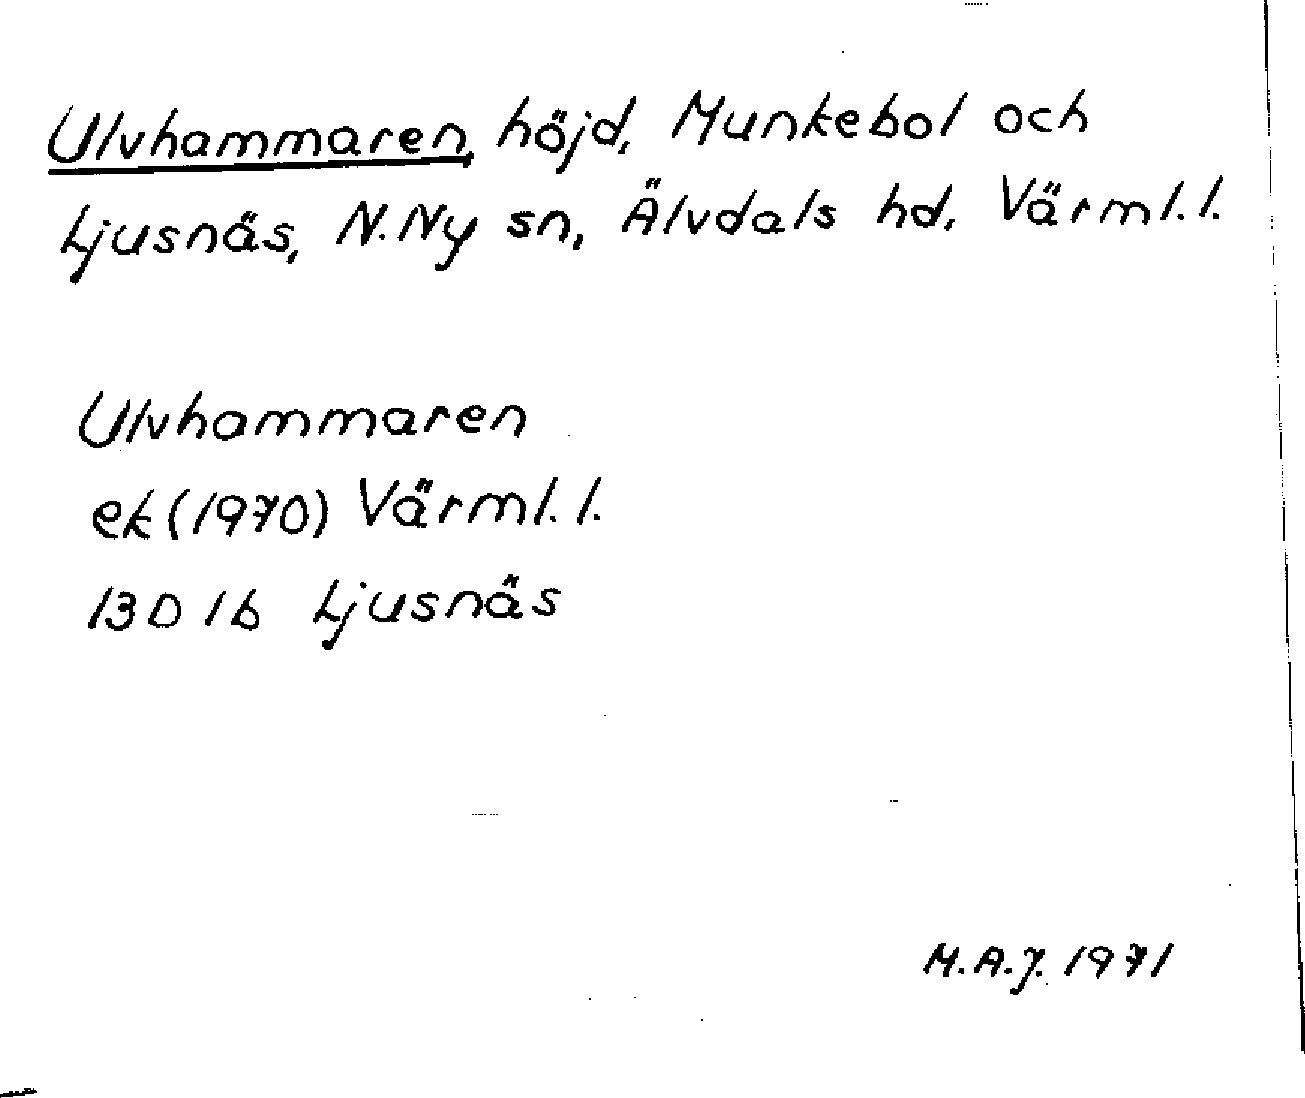 Ulvhammaren, höjd, Munkebol och
Ljusnäs, N.Ny sn, Älvdals hd, Värml. l.
Ulvhammaren
ek (1970) Värml. l.
13D 1b Ljusnäs
M.A.J. 1971